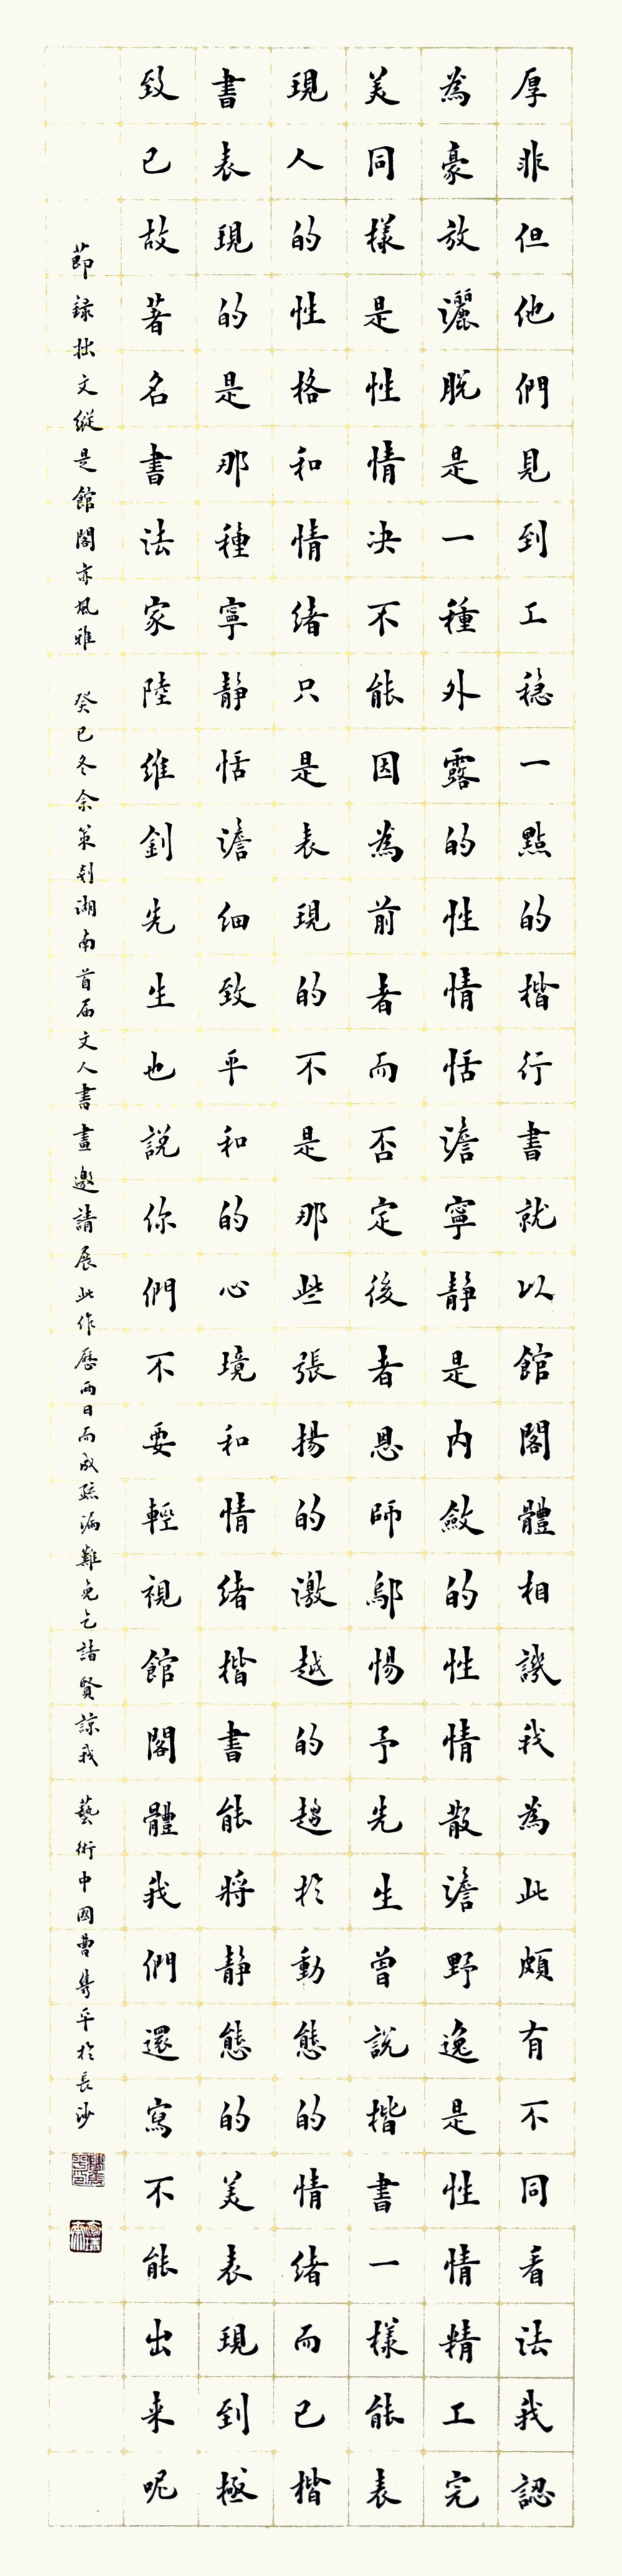 厚非但他們見到工穩一點的楷行書就以館閣體相譏我為此頗有不同看法我認
為豪放灑脫是一種外露的性情恬澹寧靜是內斂的性情散澹野逸是性情精工完
美同樣是性情决不能因為前者而否定後者恩師鄔惕予先生曾說楷書一樣能表
現人的性格和情緒只是表現的不是那些張揚的激越的趨於動態的情緒而已楷
書表現的是那種寧靜恬澹細致平和的心境和情緒楷書能將靜態的美表現到極
致已故著名書法家陸維釗先生也說你們不要輕視館閣體我們還寫不能出来呢
節錄拙文縱是館閣亦風雅 癸巳冬余策划湖南首届文人書畫邀請展此作歷兩日而成疏漏難免乞諸賢諒我 藝術中國曹隽平於長沙